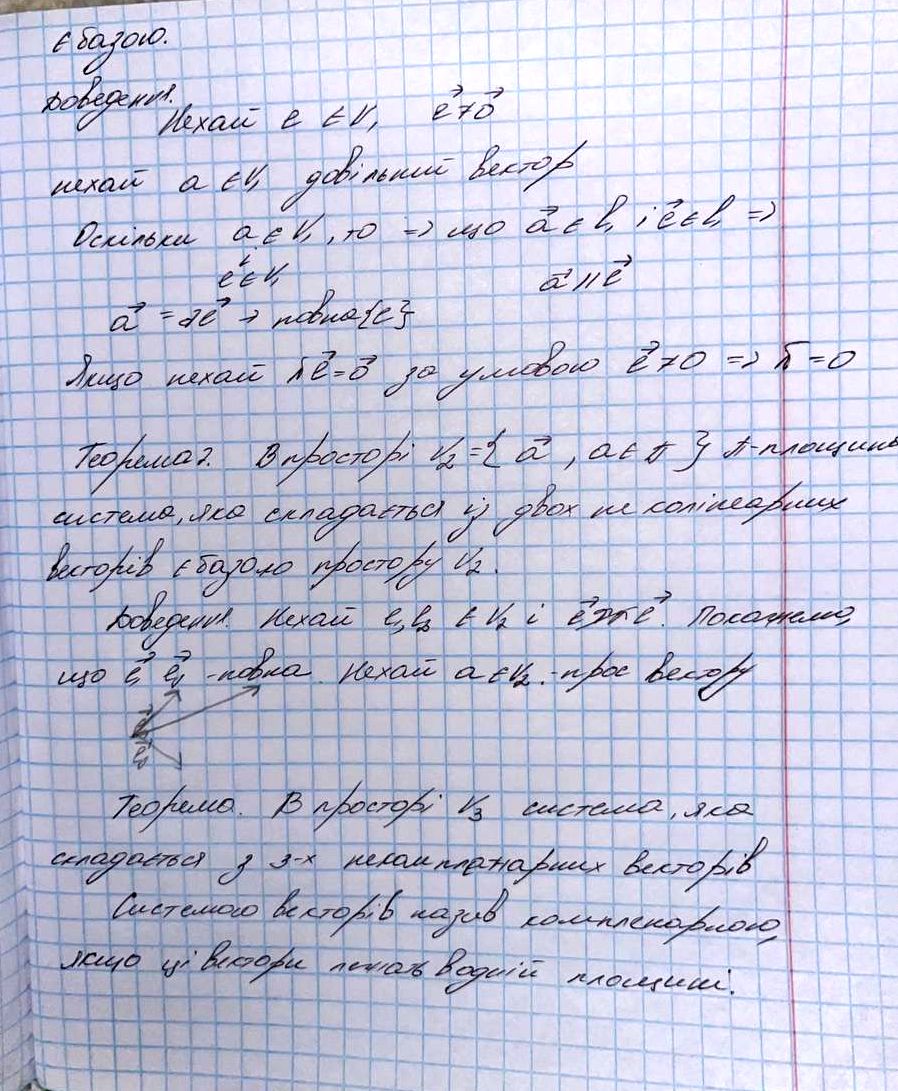 є базою.
Доведення.
Нехай e ∈ V₁ e⃗ ≠ 0⃗
нехай a ∈ V₁ довільний вектор
Оскільки a ∈ V₁, то => що a⃗ ∈ l, i e⃗ ∈ l, =>
e ∈ V₁ a⃗ || e⃗
a⃗ = λe⃗ → повна {e}
Якщо нехай λe⃗ = 0⃗ за умовою e⃗ ≠ 0 => λ = 0
Теорема 2. В просторі V₂ = { a⃗, a ∈ π } π - площина
система, яка складається із двох не колінеарних
векторів є базою простору V₂.
Доведення. Нехай e₁ e₂ ∈ V₂ і e⃗ ∦ e⃗. Покажемо,
що e⃗ e⃗ - повна. Нехай a ∈ V₂ - прос вектору
Теорема. В просторі V₃ система, яка
складається з 3-х некомпланарних векторів
Системою векторів назив компленарною,
якщо ці вектори лежать в одній площині.